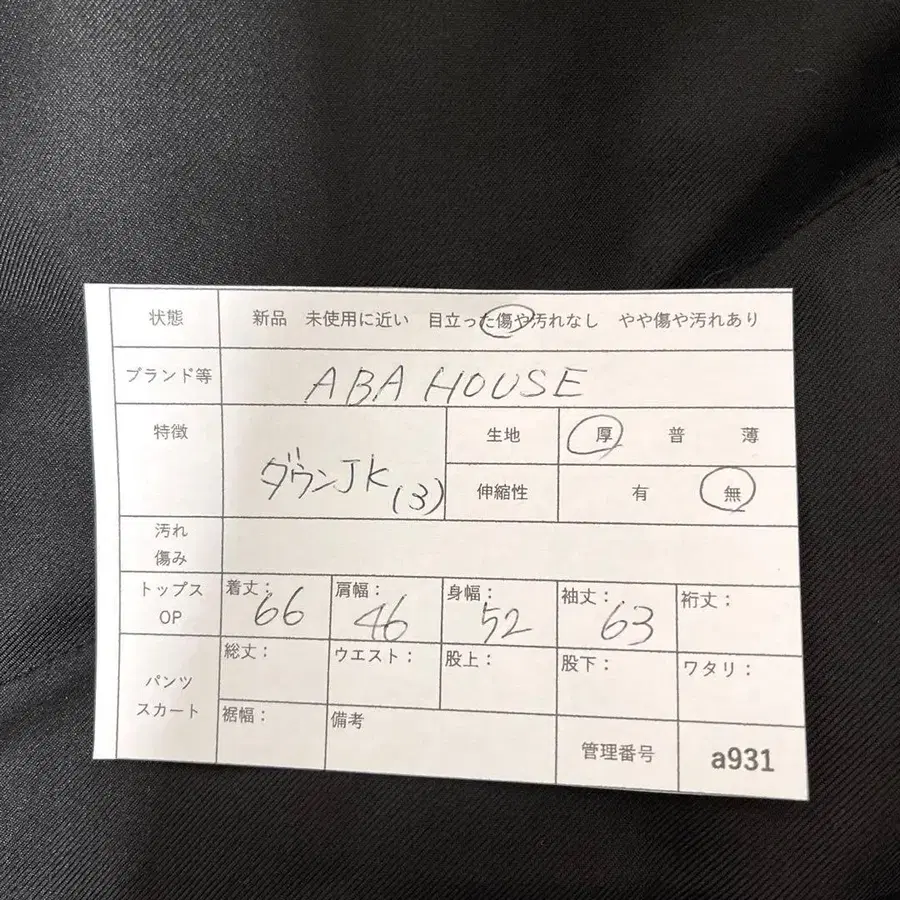 状態 新品 未使用に近い 目立った傷や汚れなし やや傷や汚れあり
ブランド等 ABA HOUSE
特徴 ダウンJK(3) 生地 厚 普 薄
伸縮性 有 無
汚れ
傷み
トップス
OP
着丈: 66 肩幅: 46 身幅: 52 袖丈: 63 裄丈:
パンツ
スカート
総丈: ウエスト: 股上: 股下: ワタリ:
裾幅: 備考 管理番号 a931